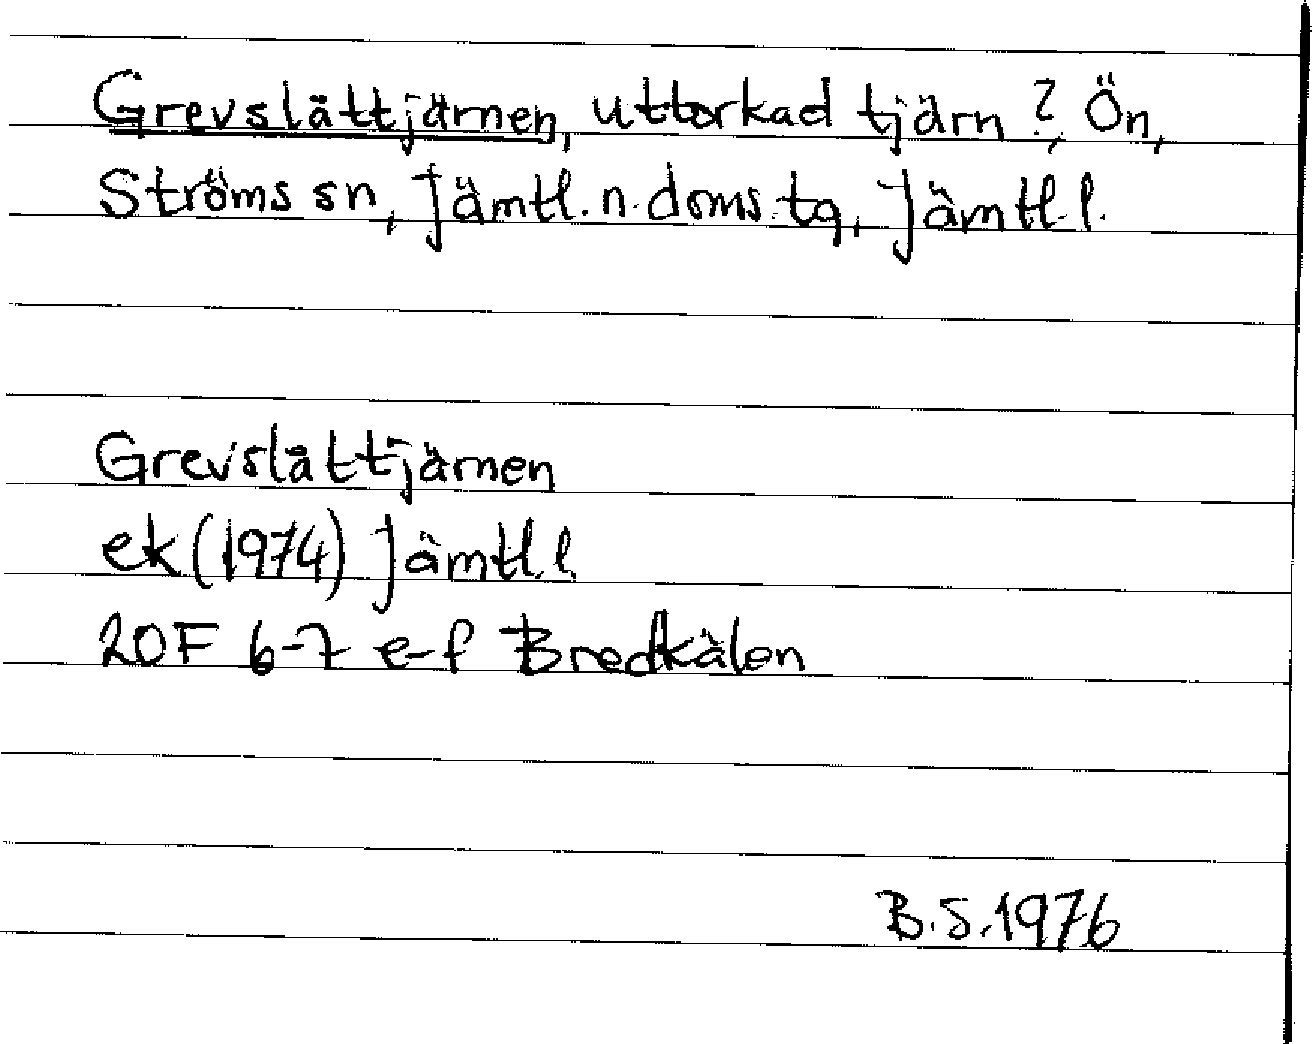 Grevslåttjärnen, uttorkad tjärn?, Ön,
Ströms sn, Jämtl. n. doms. tg, Jämtl. l.
Grevslåttjärnen
ek (1974) Jämtl. l.
20F 6-7 e-f Bredkälen
B.S. 1976